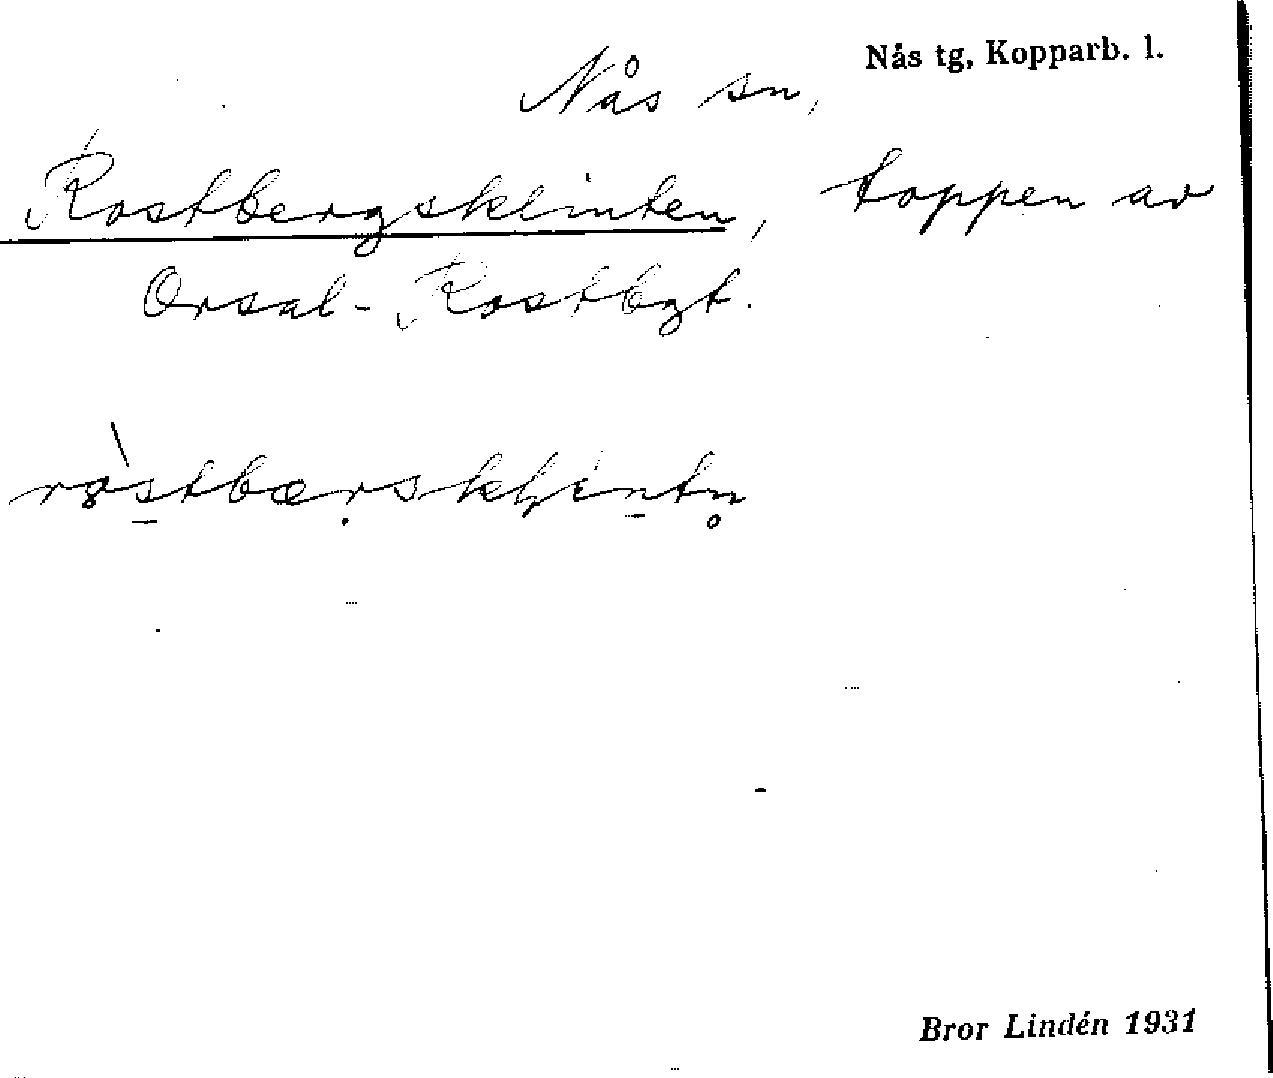 Nås tg, Kopparb. l.
Nås sn,
Rostbergsklinten, toppen av
Orsal-Rostbgt.
Bror Lindén 1931